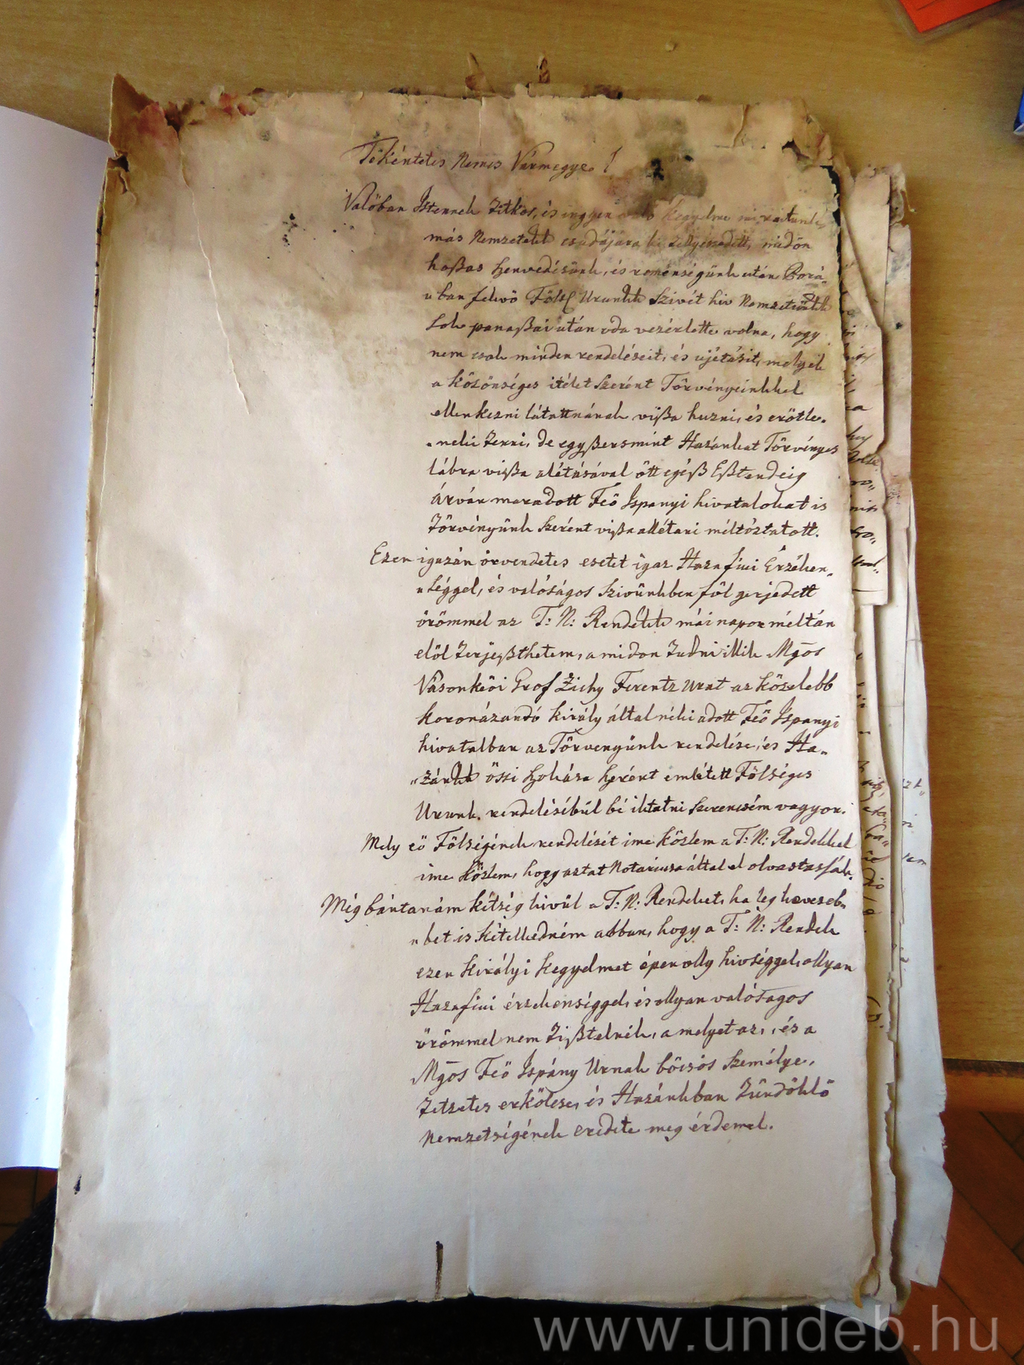 Tekéntetes Nemes Vármegye !
Valóban Istennek Titkos, és ingyen való kegyelme
más Nemzetek csudájára is midőn
hoßas szenvedésünk, és reménségünk után
fekvő Fölsé Urunk Szivét hiv Nemzetünk
sok panaßai után oda vezérlette volna, hogy
nem csak minden rendeléseit, és ujétásit, melyek
a közönséges itélet szerént Törvényeinkkel
ellenkezni látattnának vißa huzni, és erőtle-
nekü tenni, de egyßersmint Hazánkat Törvényes
lábra vißa alétásával ött egéß Eßtendeig
árván maradott Feő Ispanyi hivatalokat is
Törvényünk szerént vißa allétani méltóztatott.
Ezen igazán örvendetes esetet igaz Hazafiui Érzéken-
séggel, és valóságos Szivünkben föl gerjedett
örömmel az T: N: Rendeknek mái napon méltán
elöl terjeßthetem, a midőn Tudniillik Mgos
Vásonkeői Grof Zichy Ferentz Urat az közelebb
koronázandó király által néki adott Feő Ispanyi
hivatalban az Törvenyünk rendelése, és Ha-
zánk össi szokása szerént emlétett Fölséges
Urunk rendelésébül bé iktatni szerencsém vagyon.
Mely eő Fölségének rendelését ime közlem a T: N: Rendekkel
ime közlem, hogy aztat Notariusa által el olvastassák.
Még bántanám kétség kivül a T: N: Rendeket, ha leg kevesseb-
bet is kételkedném abban, hogy a T: N: Rendek
ezen királyi kegyelmet épen olly hivséggel, ollyan
Hazafiui érzékenséggel, és ollyan valóságos
örömmel nem tißtelnék, a melyet az, és a
Mgos Feő Ispány Urnak böcsös személye,
Tetzetes erkölcse, és Hazánkban Tündöklő
Nemzetségének eredete meg érdemel.
www.unideb.hu